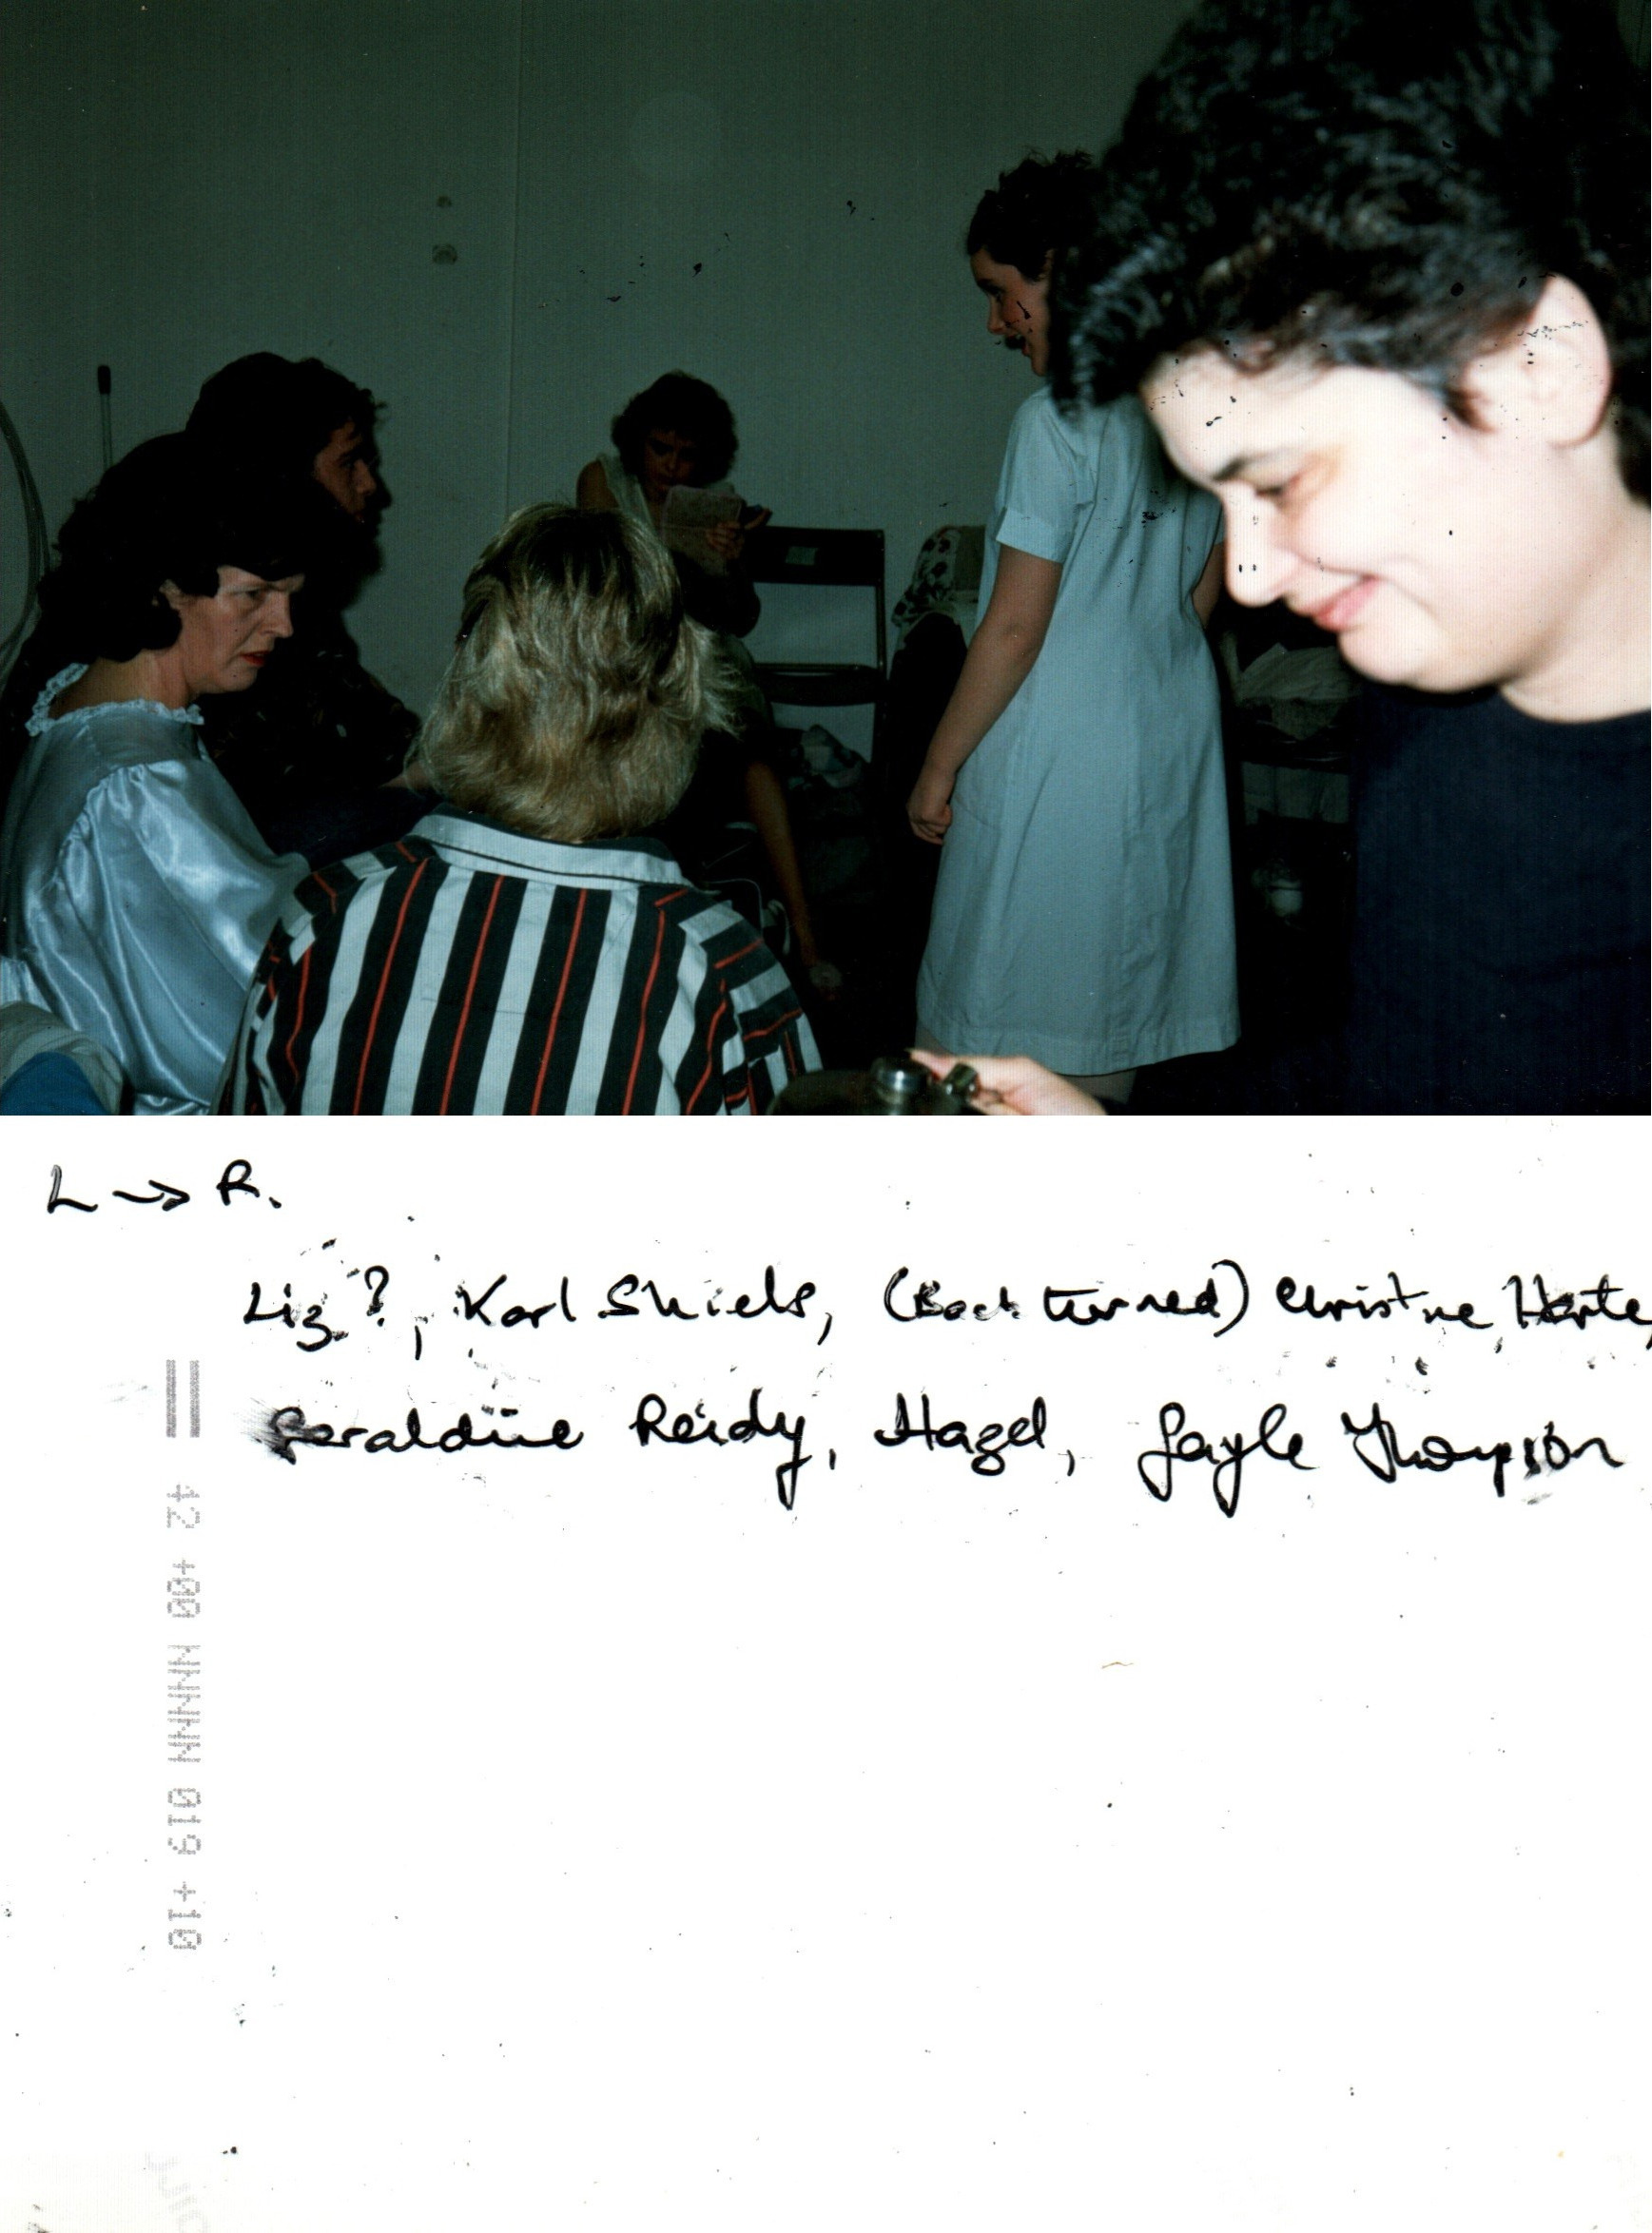 L → R.
Liz?, Karl Shiels, (Back turned) Christine Harte,
Geraldine Reidy, Hazel, Gayle Thompson